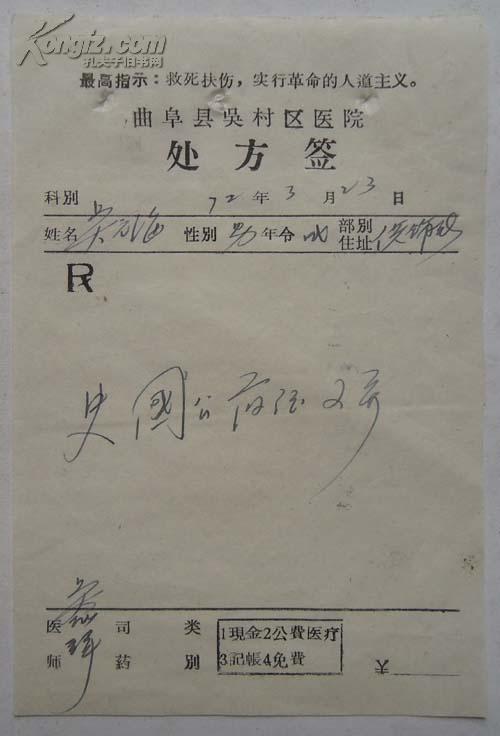 Kongfz.com
孔夫子旧书网
最高指示：救死扶伤，实行革命的人道主义。
曲阜县吳村区医院
处方签
科别 72年3月23日
姓名 吴 性别 男 年令 成 部别
住址
R
史國公药酒 又 瓶
医 司 类 1現金2公費医疗
师 药 别 3記帳4免費